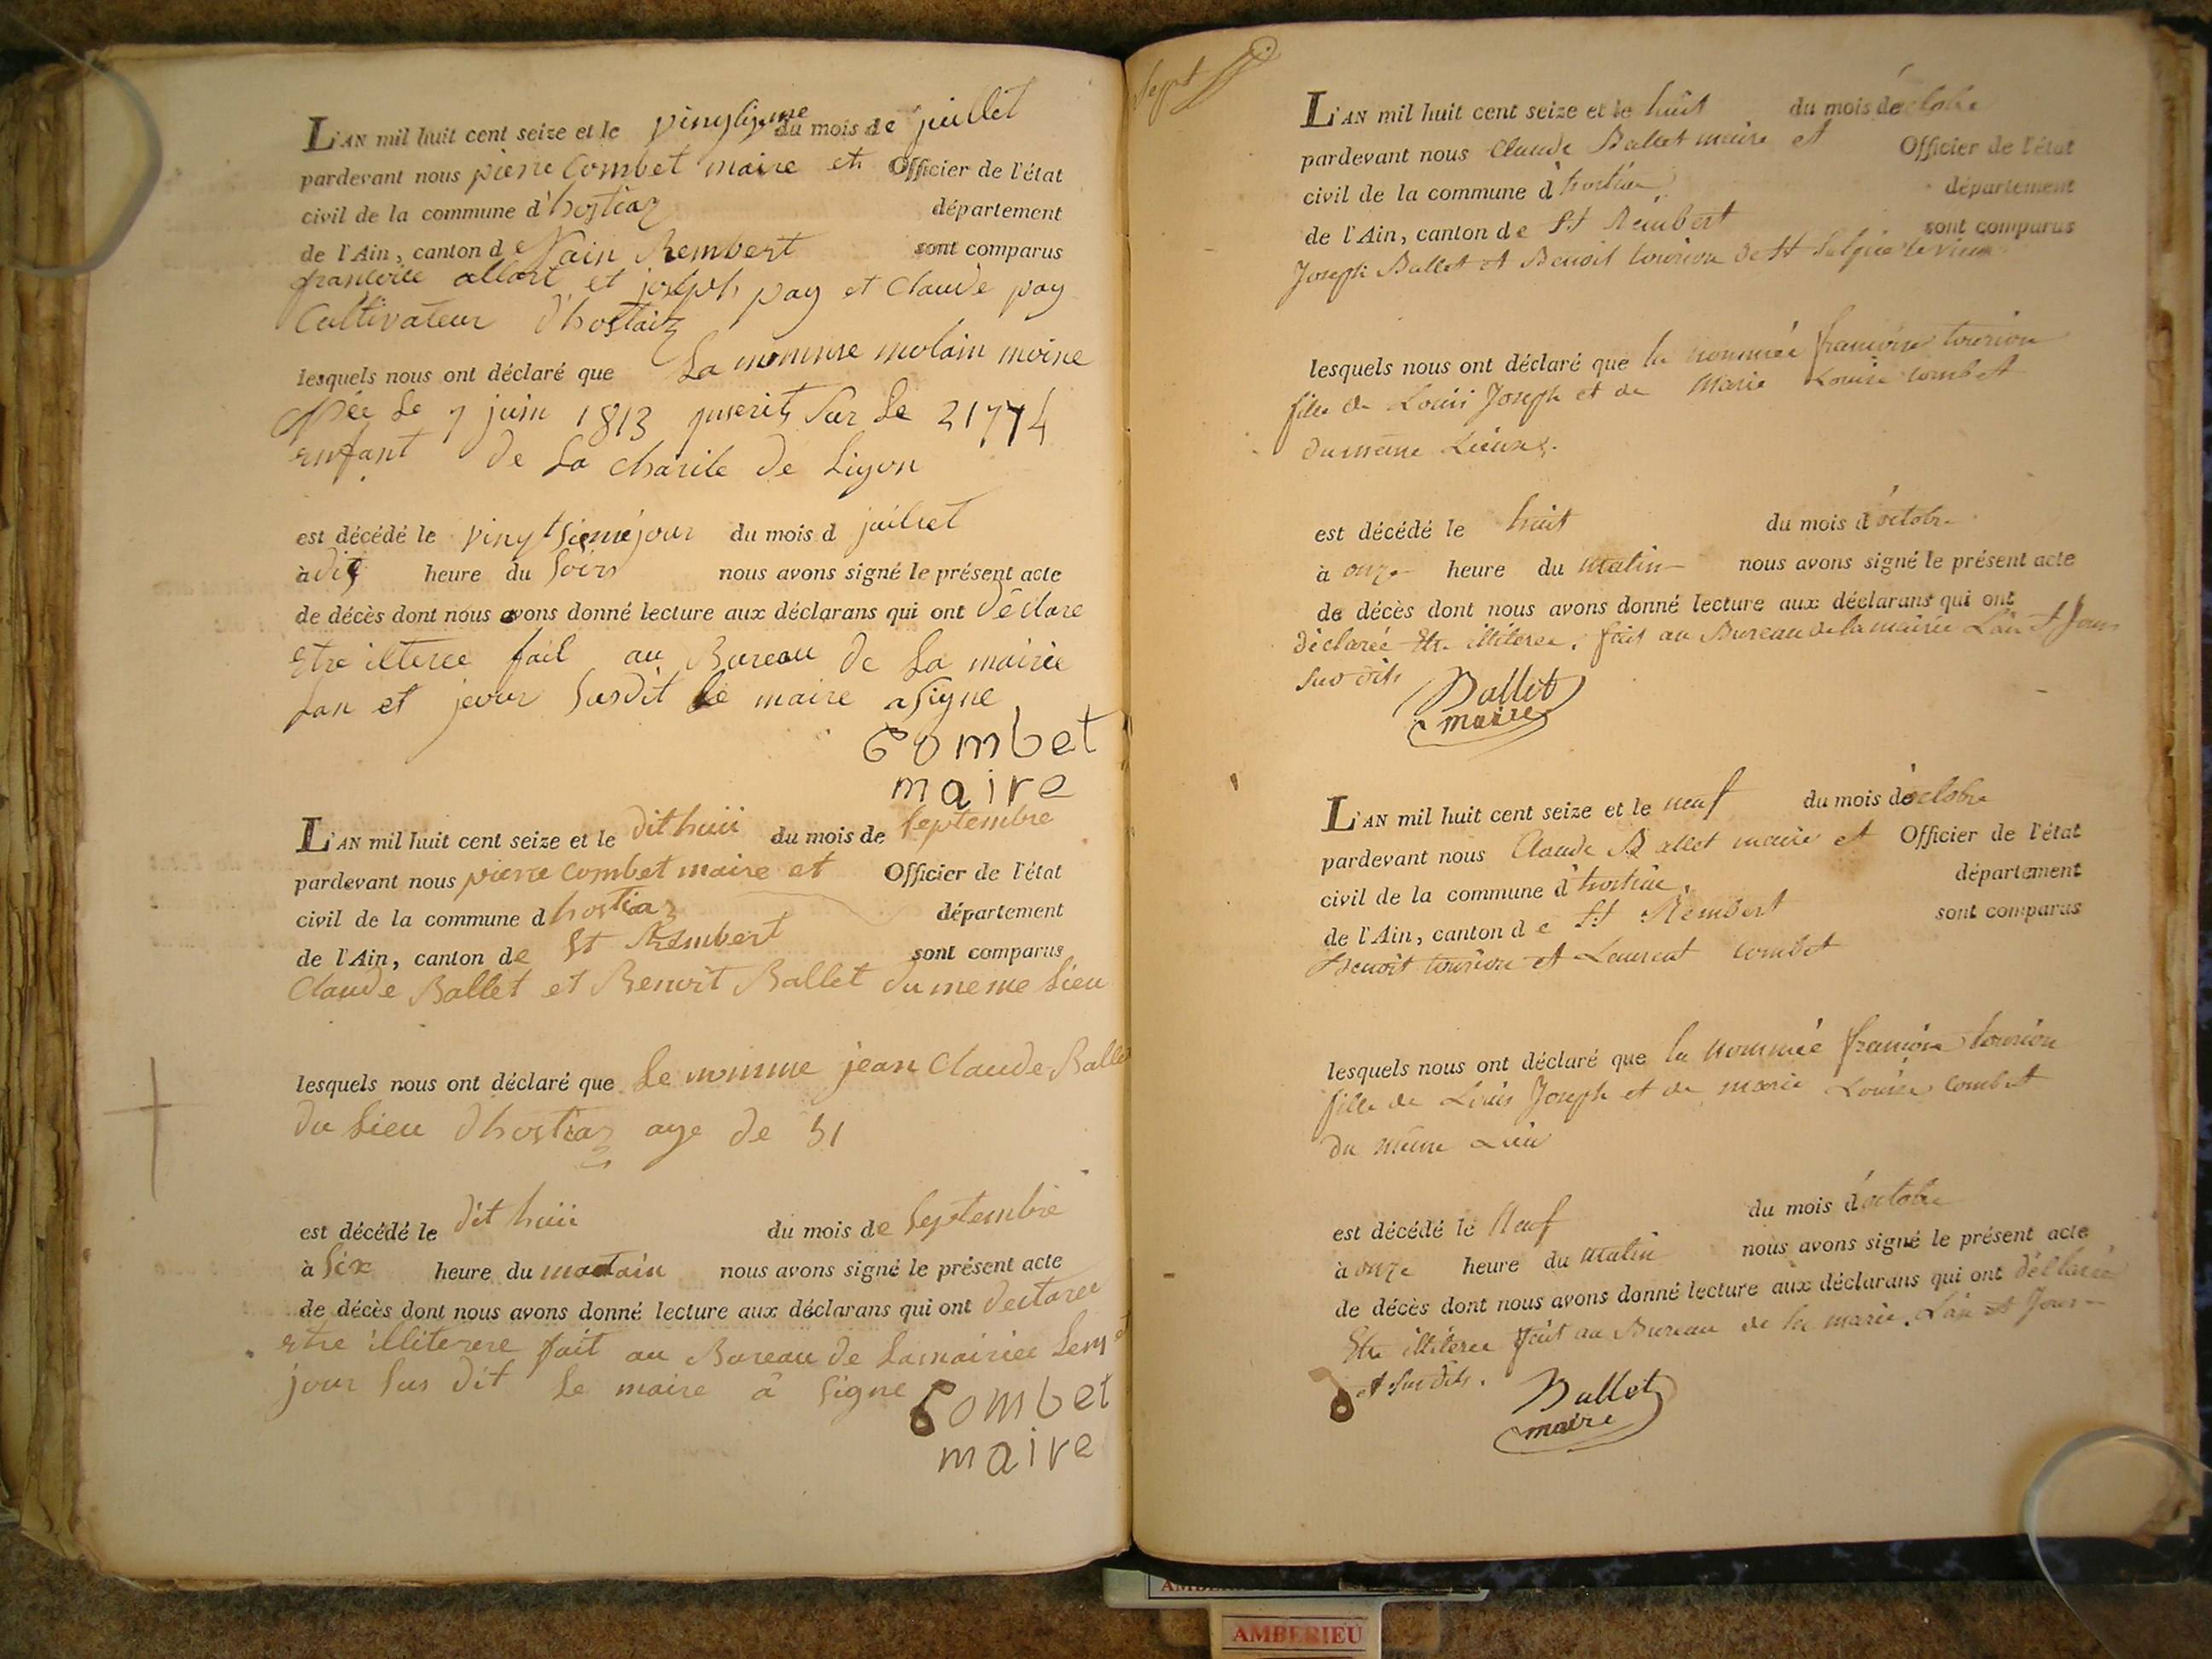 L'AN mil huit cent seize et le du mois de juillet
pardevant nous pierre Combet maire et Officier de l'état
civil de la commune d'hostiaz département
de l'Ain, canton de Sain Rembert sont comparus
francoise allart et joseph pay et Claude pay
Cultivateur d'hostaiz
lesquels nous ont déclaré que La nomme molain moine
née Le 7 juin 1813 inscrit Sur Le 21774
enfant de La charite de Liyon
est décédé le vingt jour du mois d juillet
à dis heure du Soirs nous avons signé le présent acte
de décès dont nous avons donné lecture aux déclarans qui ont déclare
Etre iltere fait au Bureau de La mairie
Lan et jeour Susdit Le maire a Signe
Combet
maire
L'AN mil huit cent seize et le dit huii du mois de Septembre
pardevant nous pierre Combet maire et Officier de l'état
civil de la commune d hostiaz département
de l'Ain, canton de St Rembert sont comparus
Claude Ballet et Benoit Ballet du meme Lieu
lesquels nous ont déclaré que Le nomme jean Claude Ballet
du Lieu dhostiaz age de 51
est décédé le dit huii du mois de Septembre
à Six heure du matain nous avons signé le présent acte
de décès dont nous avons donné lecture aux déclarans qui ont declaree
Etre illiterere fait au Bureau de Lamairiee et
jour Sus dit Le maire a Signe
Combet
maire
Sept
L'AN mil huit cent seize et le huit du mois d'octobre
pardevant nous Claude Ballet maire et Officier de l'état
civil de la commune d'hostiaz département
de l'Ain, canton de St Rembert sont comparus
Joseph Ballet et Benoit tourion de St
lesquels nous ont déclaré que la nommée francoise tourion
fille de Louis Joseph et de Marie Louise combet
du meme Lieux.
est décédé le huit du mois d'octobre
à onze heure du matin nous avons signé le présent acte
de décès dont nous avons donné lecture aux déclarans qui ont
déclarée Etre illiteree. fait au Bureau de la mairie Lan et Jour
sus dits
Ballet
maire
L'AN mil huit cent seize et le neuf du mois d'octobre
pardevant nous Claude Ballet maire et Officier de l'état
civil de la commune d'hostiaz département
de l'Ain, canton de St Rembert sont comparus
Benoit tourion et Laurent Combet
lesquels nous ont déclaré que la nommée francoise tourion
fille de Louis Joseph et de marie Louise Combet
du meme Lieu
est décédé le Neuf du mois d'octobre
à onze heure du matin nous avons signé le présent acte
de décès dont nous avons donné lecture aux déclarans qui ont déclarée
Etre illiteree fait au Bureau de la marie. Lan et Jour
et sus dits.
Ballet
maire
AMBERIEU